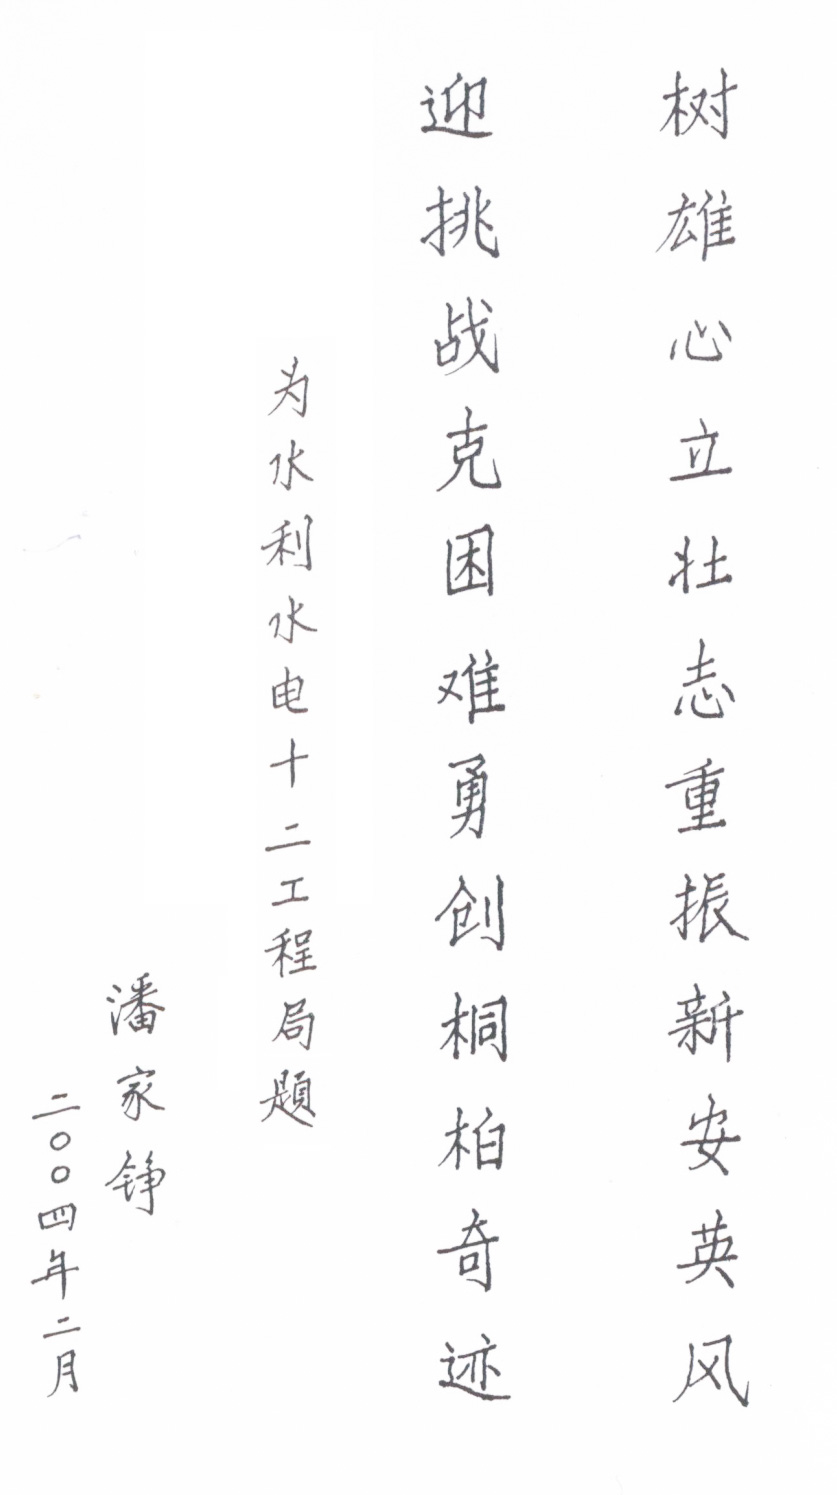 树雄心立壮志重振新安英风
迎挑战克困难勇创桐柏奇迹
为水利水电十二工程局题
潘家铮
二〇〇四年二月